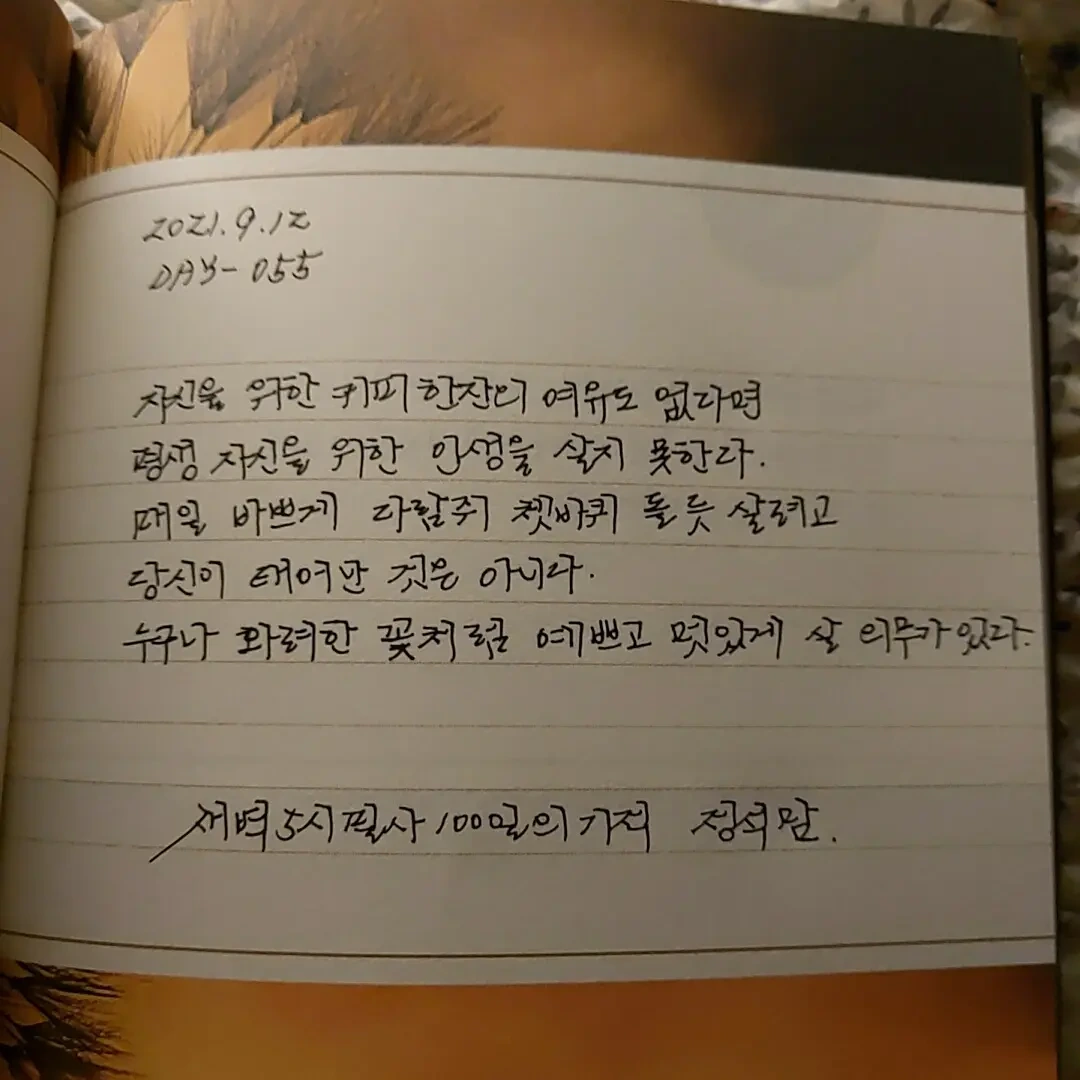 2021.9.12
DAY-055
자신을 위한 커피 한잔의 여유도 없다면
평생 자신을 위한 인생을 살지 못한다.
매일 바쁘게 다람쥐 쳇바퀴 돌듯 살려고
당신이 태어난 것은 아니다.
누구나 화려한 꽃처럼 예쁘고 멋있게 살 의무가 있다.
새벽 5시 필사 100일의 기적